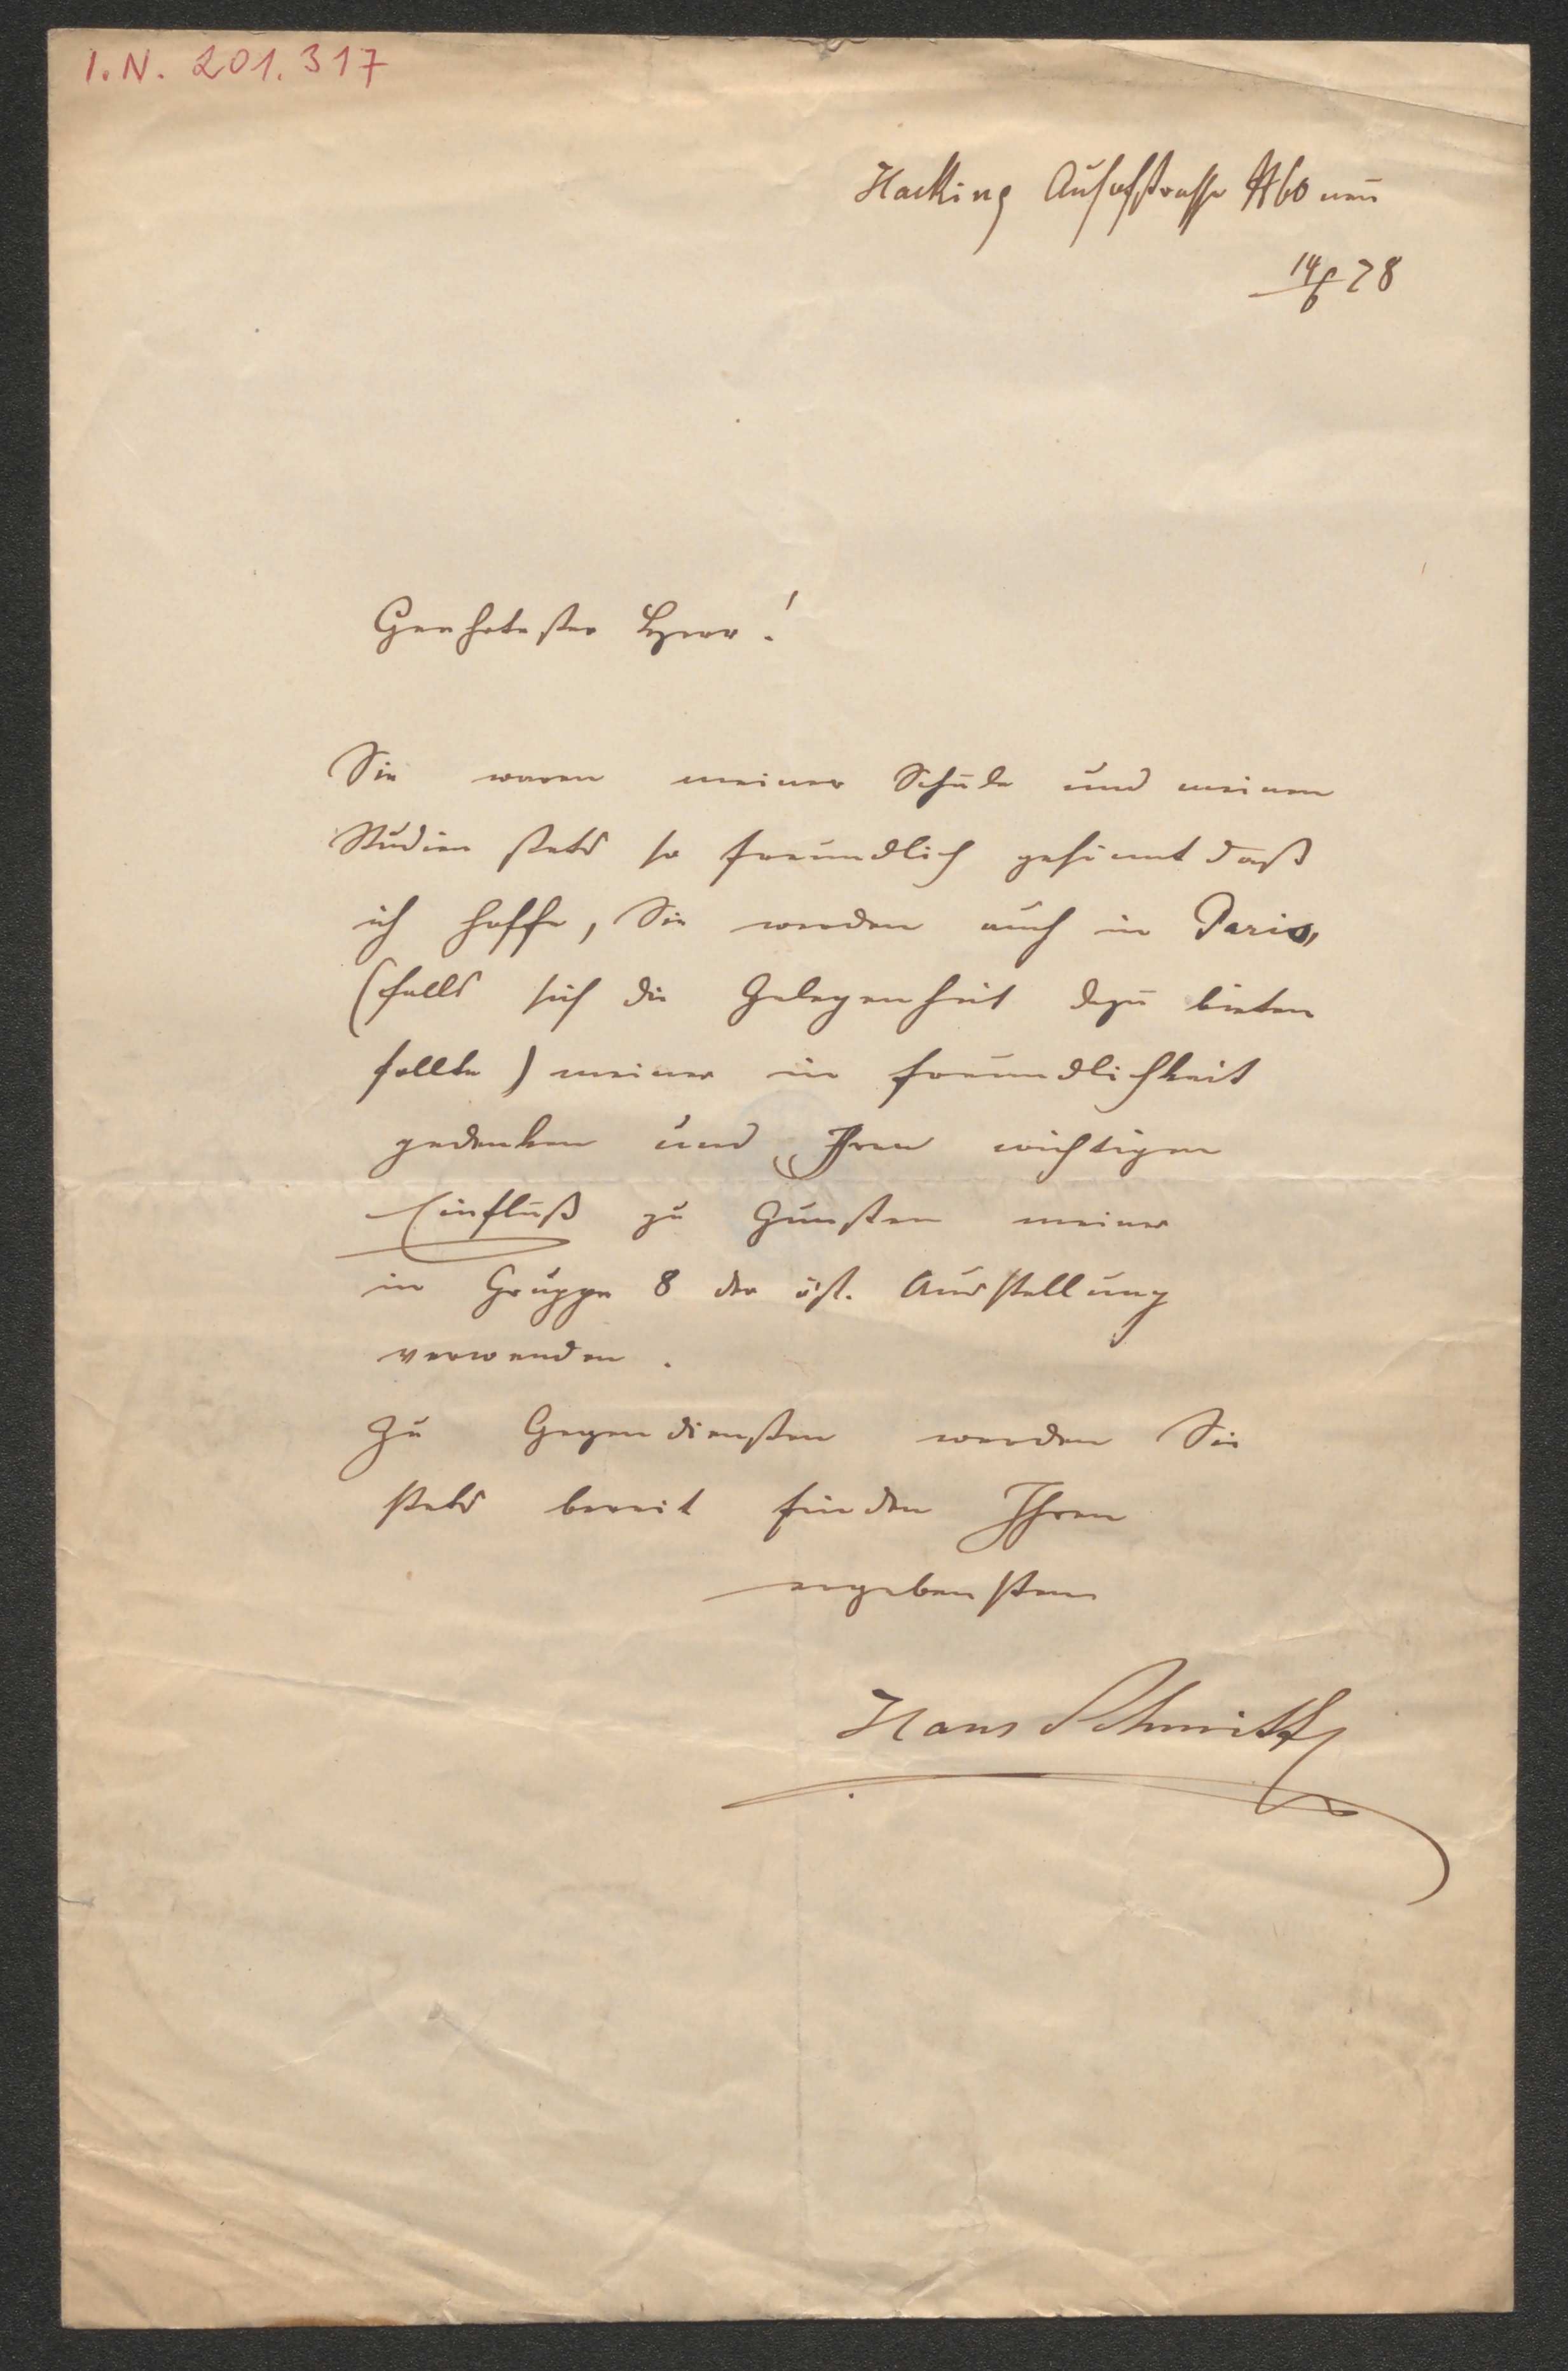 I.N. 201.317
Hacking Auhofstrasse № 60 neu
14/6 78
Geehrtester Herr!
Sie waren meiner Schule und meinen
Studien stets so freundlich gesinnt daß
ich hoffe, Sie werden auch in Paris,
(falls sich die Gelegenheit dazu bieten
sollte) meiner in Freundlichkeit
gedenken und Ihren wichtigen
Einfluß zu Gunsten meiner
in Gruppe 8 der öst. Ausstellung
verwenden.
Zu Gegendiensten werden Sie
stets bereit finden Ihren
ergebensten
Hans Schmitt